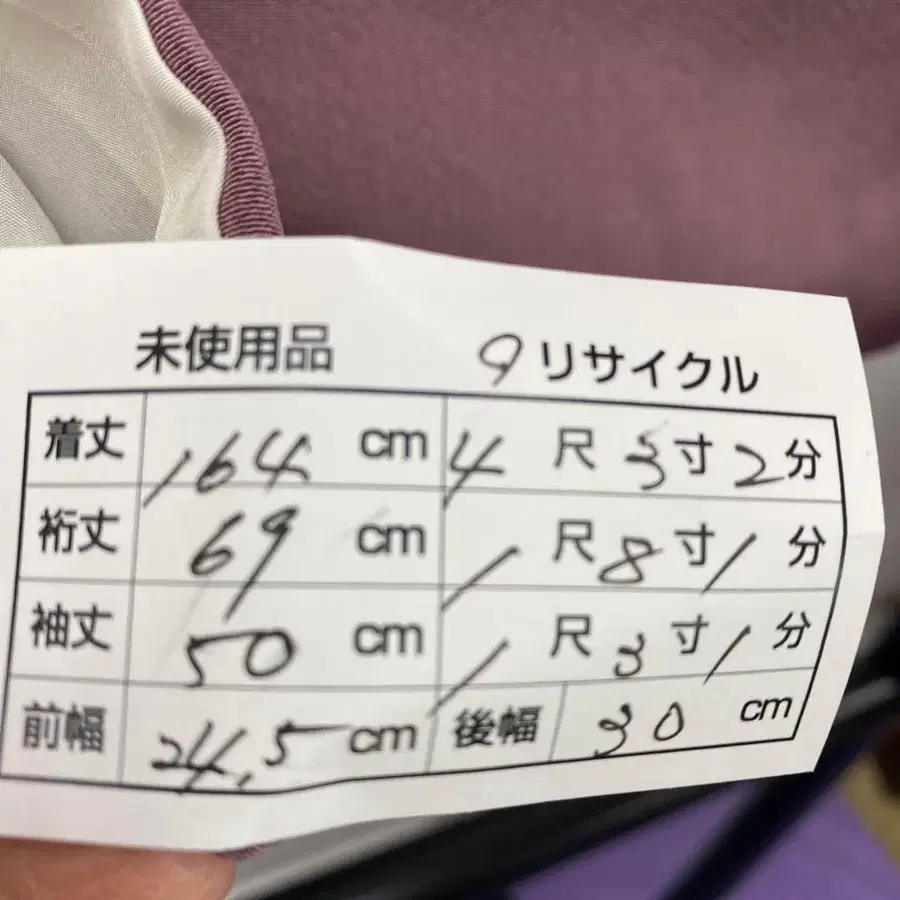 未使用品 9リサイクル
着丈 164 cm 4 尺 3 寸 2 分
裄丈 69 cm 1 尺 8 寸 1 分
袖丈 50 cm 1 尺 3 寸 1 分
前幅 24.5 cm 後幅 30 cm